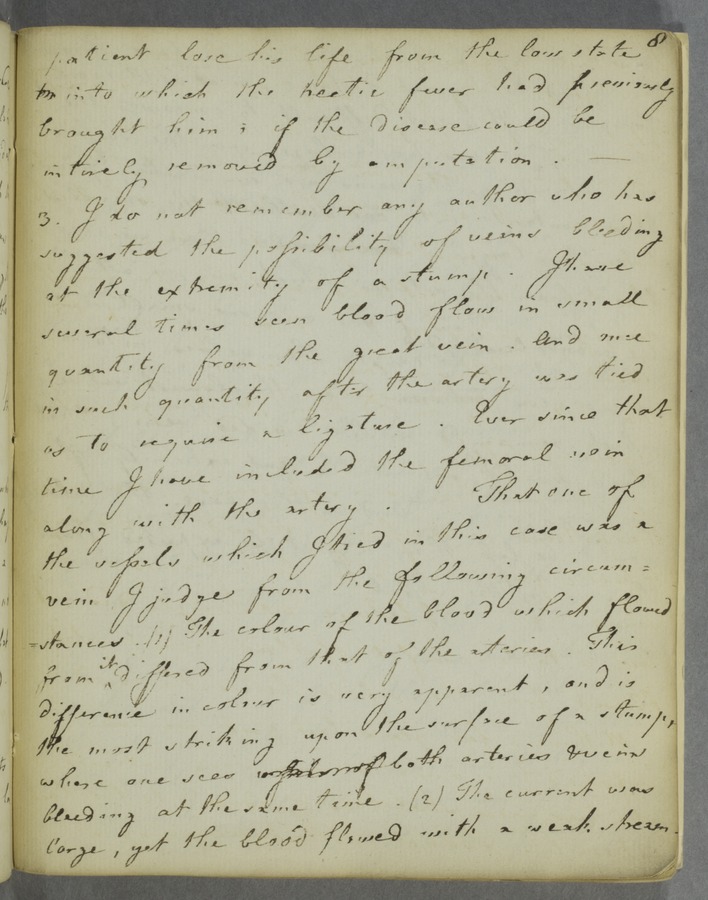 8
patient lose his life from the low state
into which the hectic fever had previously
brought him; if the disease could be
intirely removed by amputation. —
3. I do not remember any author who has
suggested the possibility of veins bleeding
at the extremity of a stump. I have
several times seen blood flow in small
quantity from the great vein. And once
in such quantity after the artery was tied
as to require a ligature. Ever since that
time I have included the femoral vein
along with the artery. That one of
the vessels which I tied in this case was a
vein I judge from the following circum=
=stances. (1) The colour of the blood which flowed
from it differed from that of the arteries. This
difference in colour is very apparent, and is
the most striking upon the surface of a stump,
where one sees both arteries & veins
bleeding at the same time. (2) The current was
large, yet the blood flowed with a weak stream.